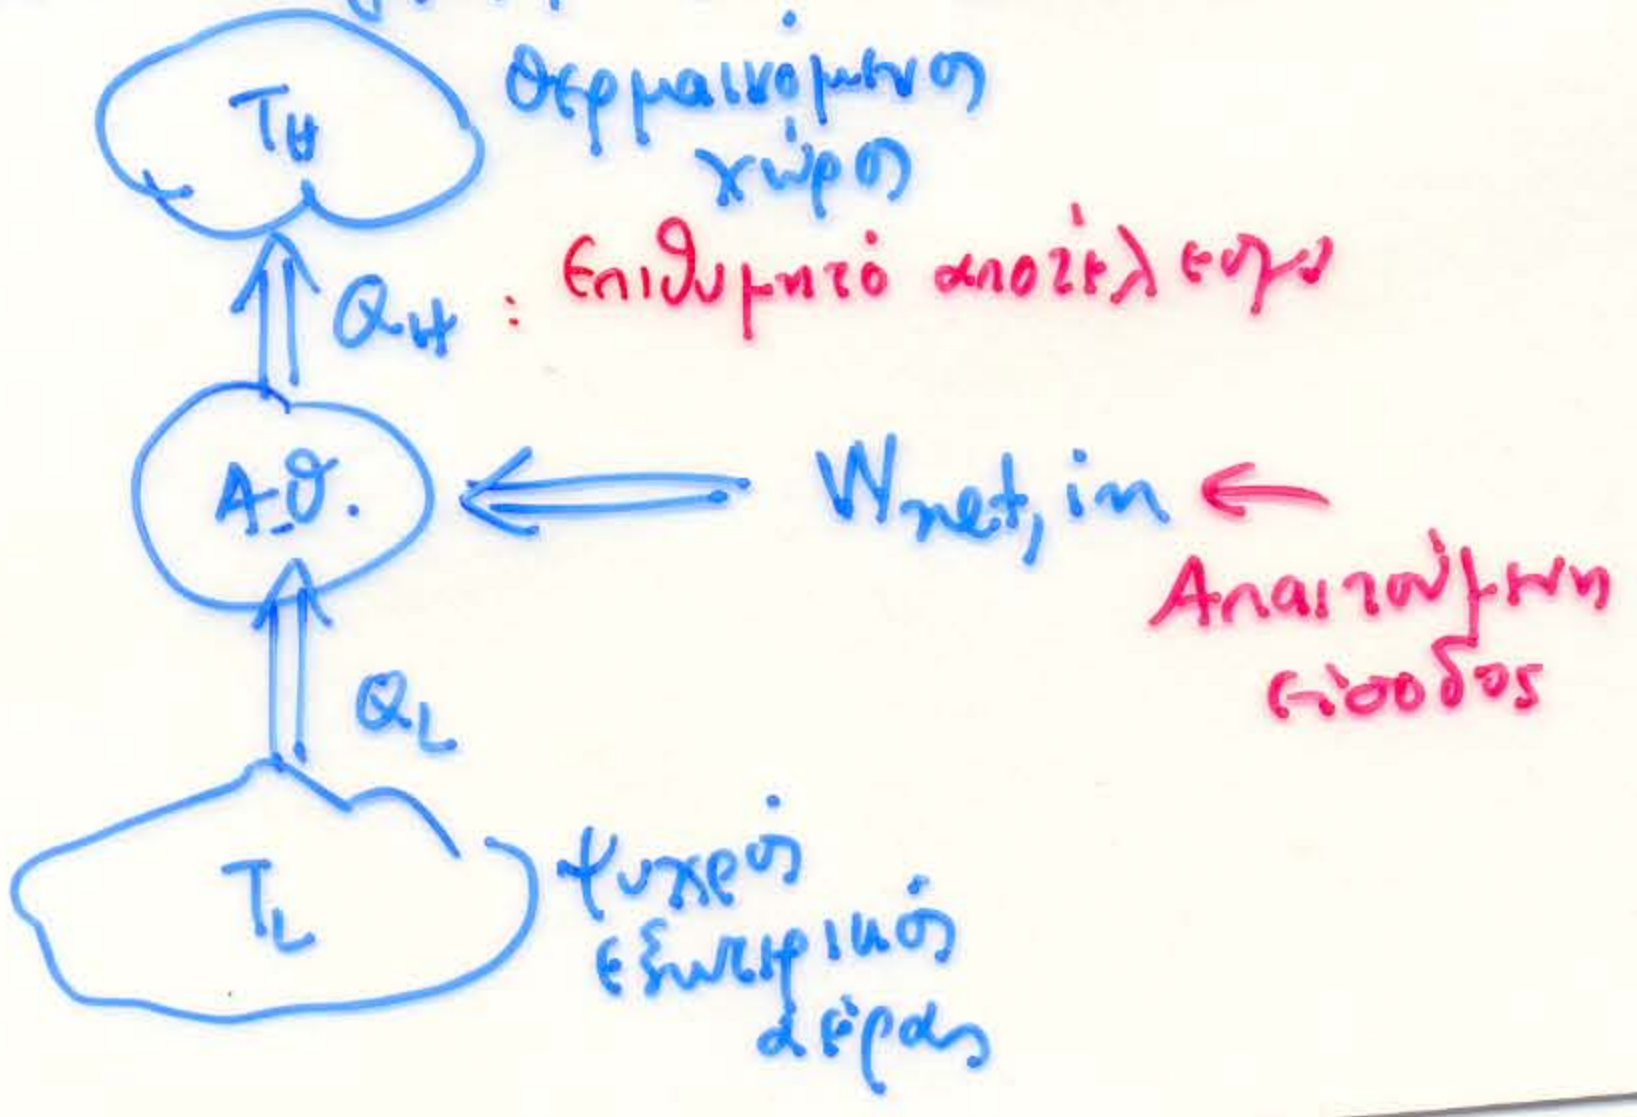 T_H
θερμαινόμενος
χώρος
Q_H : Επιθυμητό αποτέλεσμα
Α.Θ.
W_net, in
Απαιτούμενη
είσοδος
Q_L
T_L
ψυχρός
εξωτερικός
αέρας